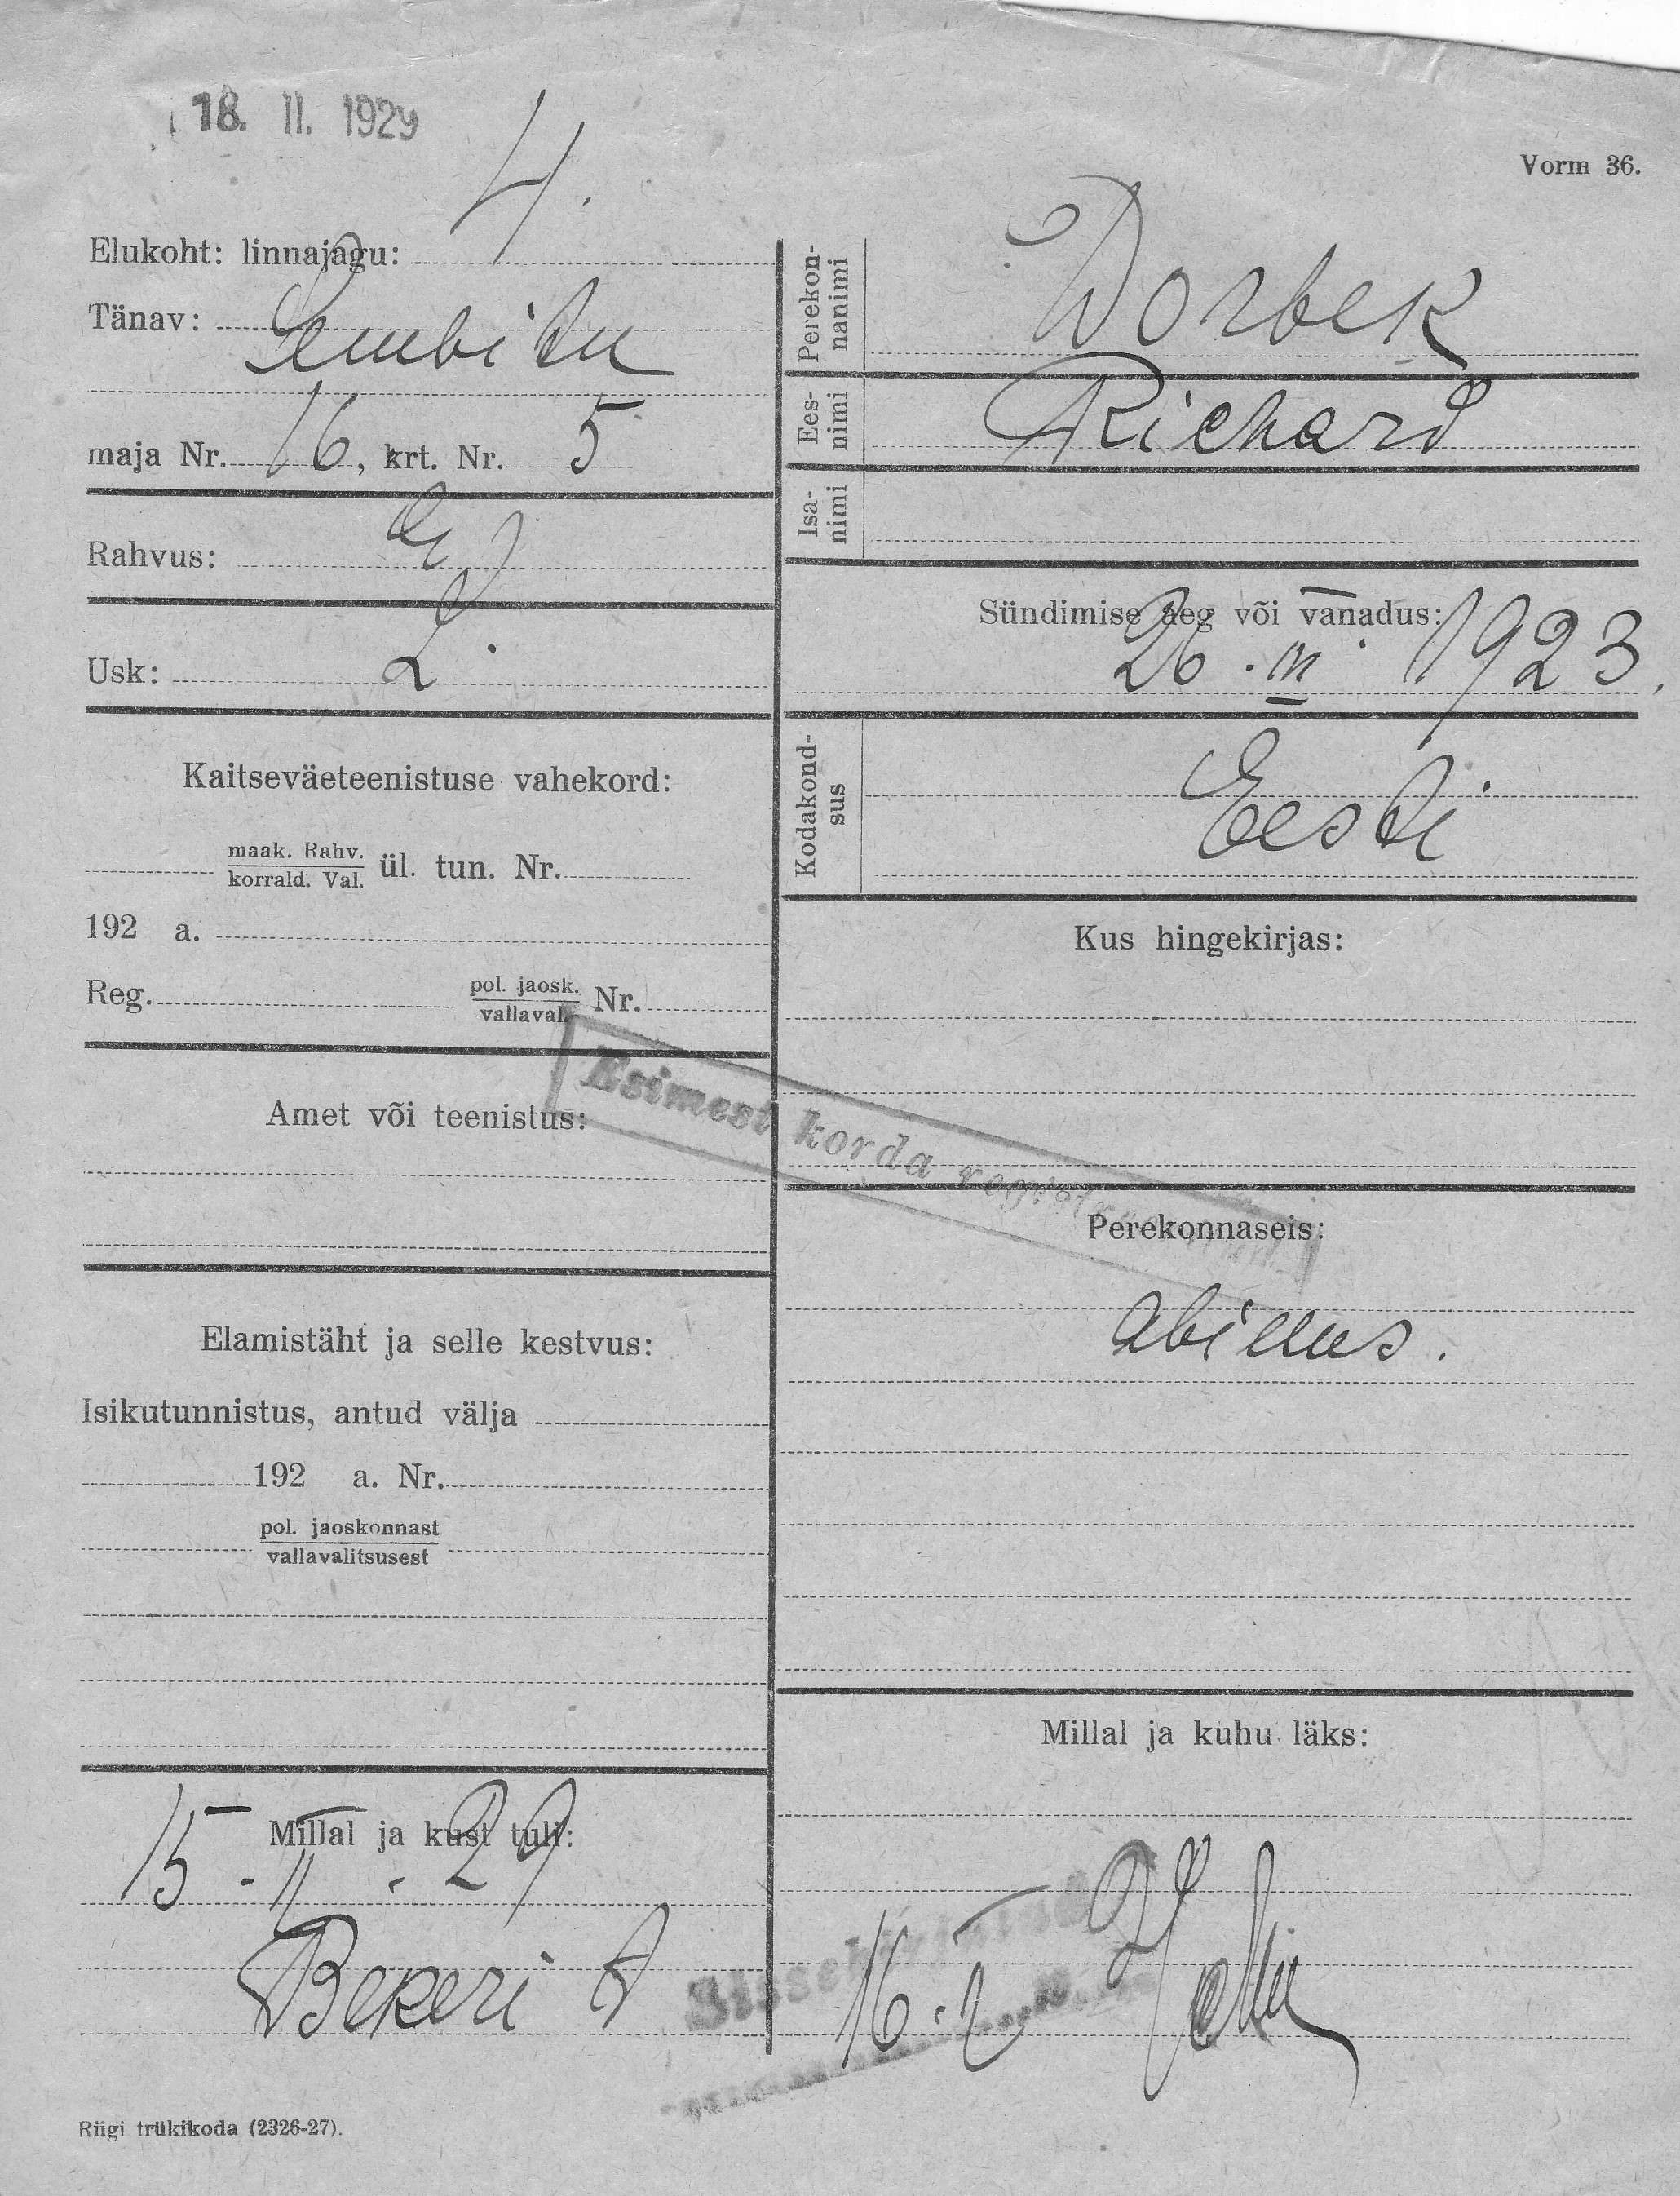 18. II. 1929
Vorm 36.
4.
Elukoht: linnajagu:
Tänav: Lembitu
maja Nr. 16, krt. Nr. 5
Rahvus: E
Usk: L.
Kaitseväeteenistuse vahekord:
maak. Rahv.
korrald. Val. ül. tun. Nr.
192 a.
Reg. pol. jaosk.
vallaval. Nr.
Amet või teenistus:
Elamistäht ja selle kestvus:
Isikutunnistus, antud välja
192 a. Nr.
pol. jaoskonnast
vallavalitsusest
Millal ja kust tuli:
15.II.29
Bekeri
Perekon-
nanimi
Worbek
Ees-
nimi
Richard
Isa-
nimi
Sündimise aeg või vanadus:
26.III 1923.
Kodakond-
sus
Eesti
Kus hingekirjas:
Esimest korda
Perekonnaseis:
Millal ja kuhu läks:
16.
Riigi trükikoda (2326-27).